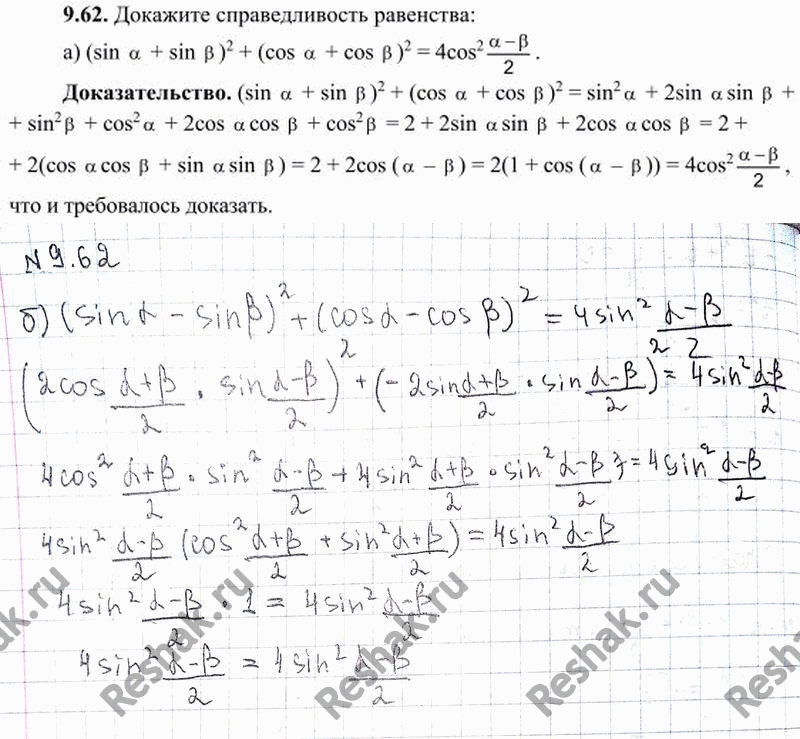 9.62. Докажите справедливость равенства:
а) (sin α + sin β)² + (cos α + cos β)² = 4cos² (α–β)/2 .
Доказательство. (sin α + sin β)² + (cos α + cos β)² = sin²α + 2sin α sin β +
+ sin²β + cos²α + 2cos α cos β + cos²β = 2 + 2sin α sin β + 2cos α cos β = 2 +
+ 2(cos α cos β + sin α sin β) = 2 + 2cos (α – β) = 2(1 + cos (α – β)) = 4cos² (α–β)/2 ,
что и требовалось доказать.
N 9.62
б) (sinα – sinβ)² + (cosα – cosβ)² = 4sin² (α–β)/2
(2cos (α+β)/2 · sin (α–β)/2)² + (–2sin (α+β)/2 · sin (α–β)/2)² = 4sin² (α–β)/2
4cos² (α+β)/2 · sin² (α–β)/2 + 4sin² (α+β)/2 · sin² (α–β)/2 = 4sin² (α–β)/2
4sin² (α–β)/2 (cos² (α+β)/2 + sin² (α+β)/2) = 4sin² (α–β)/2
4sin² (α–β)/2 · 1 = 4sin² (α–β)/2
4sin² (α–β)/2 = 4sin² (α–β)/2
Reshak.ru
Reshak.ru
Reshak.ru
Reshak.ru